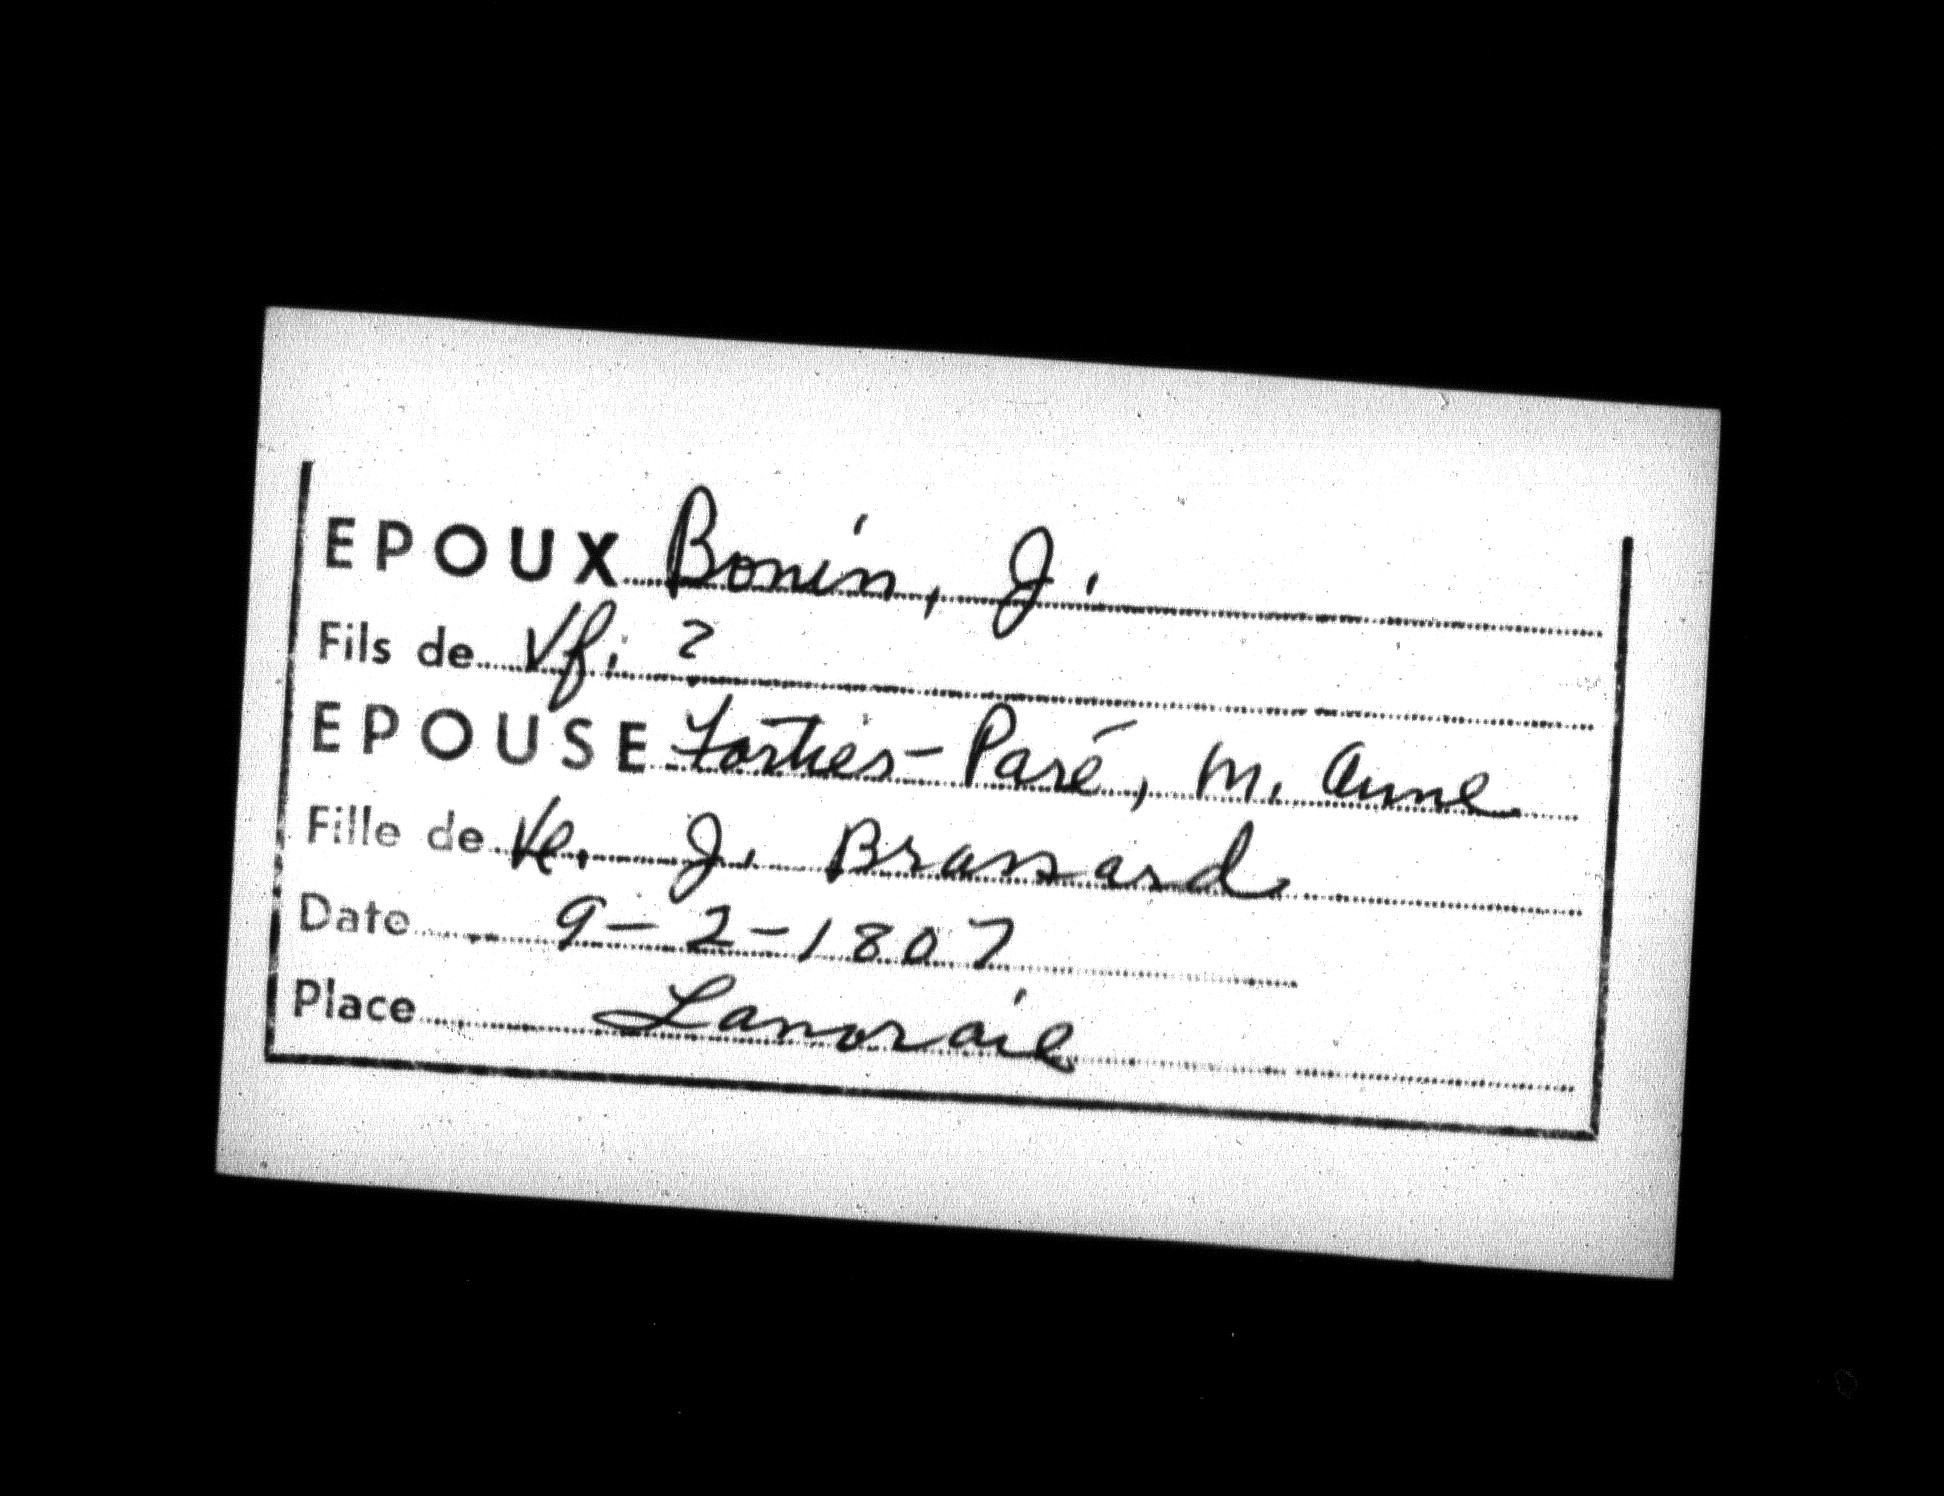 EPOUX Bonin, J.
Fils de Vf. ?
EPOUSE Forties-Paré, M. Anne
Fille de Ve. J. Brassard
Date 9-2-1807
Place Lanoraie